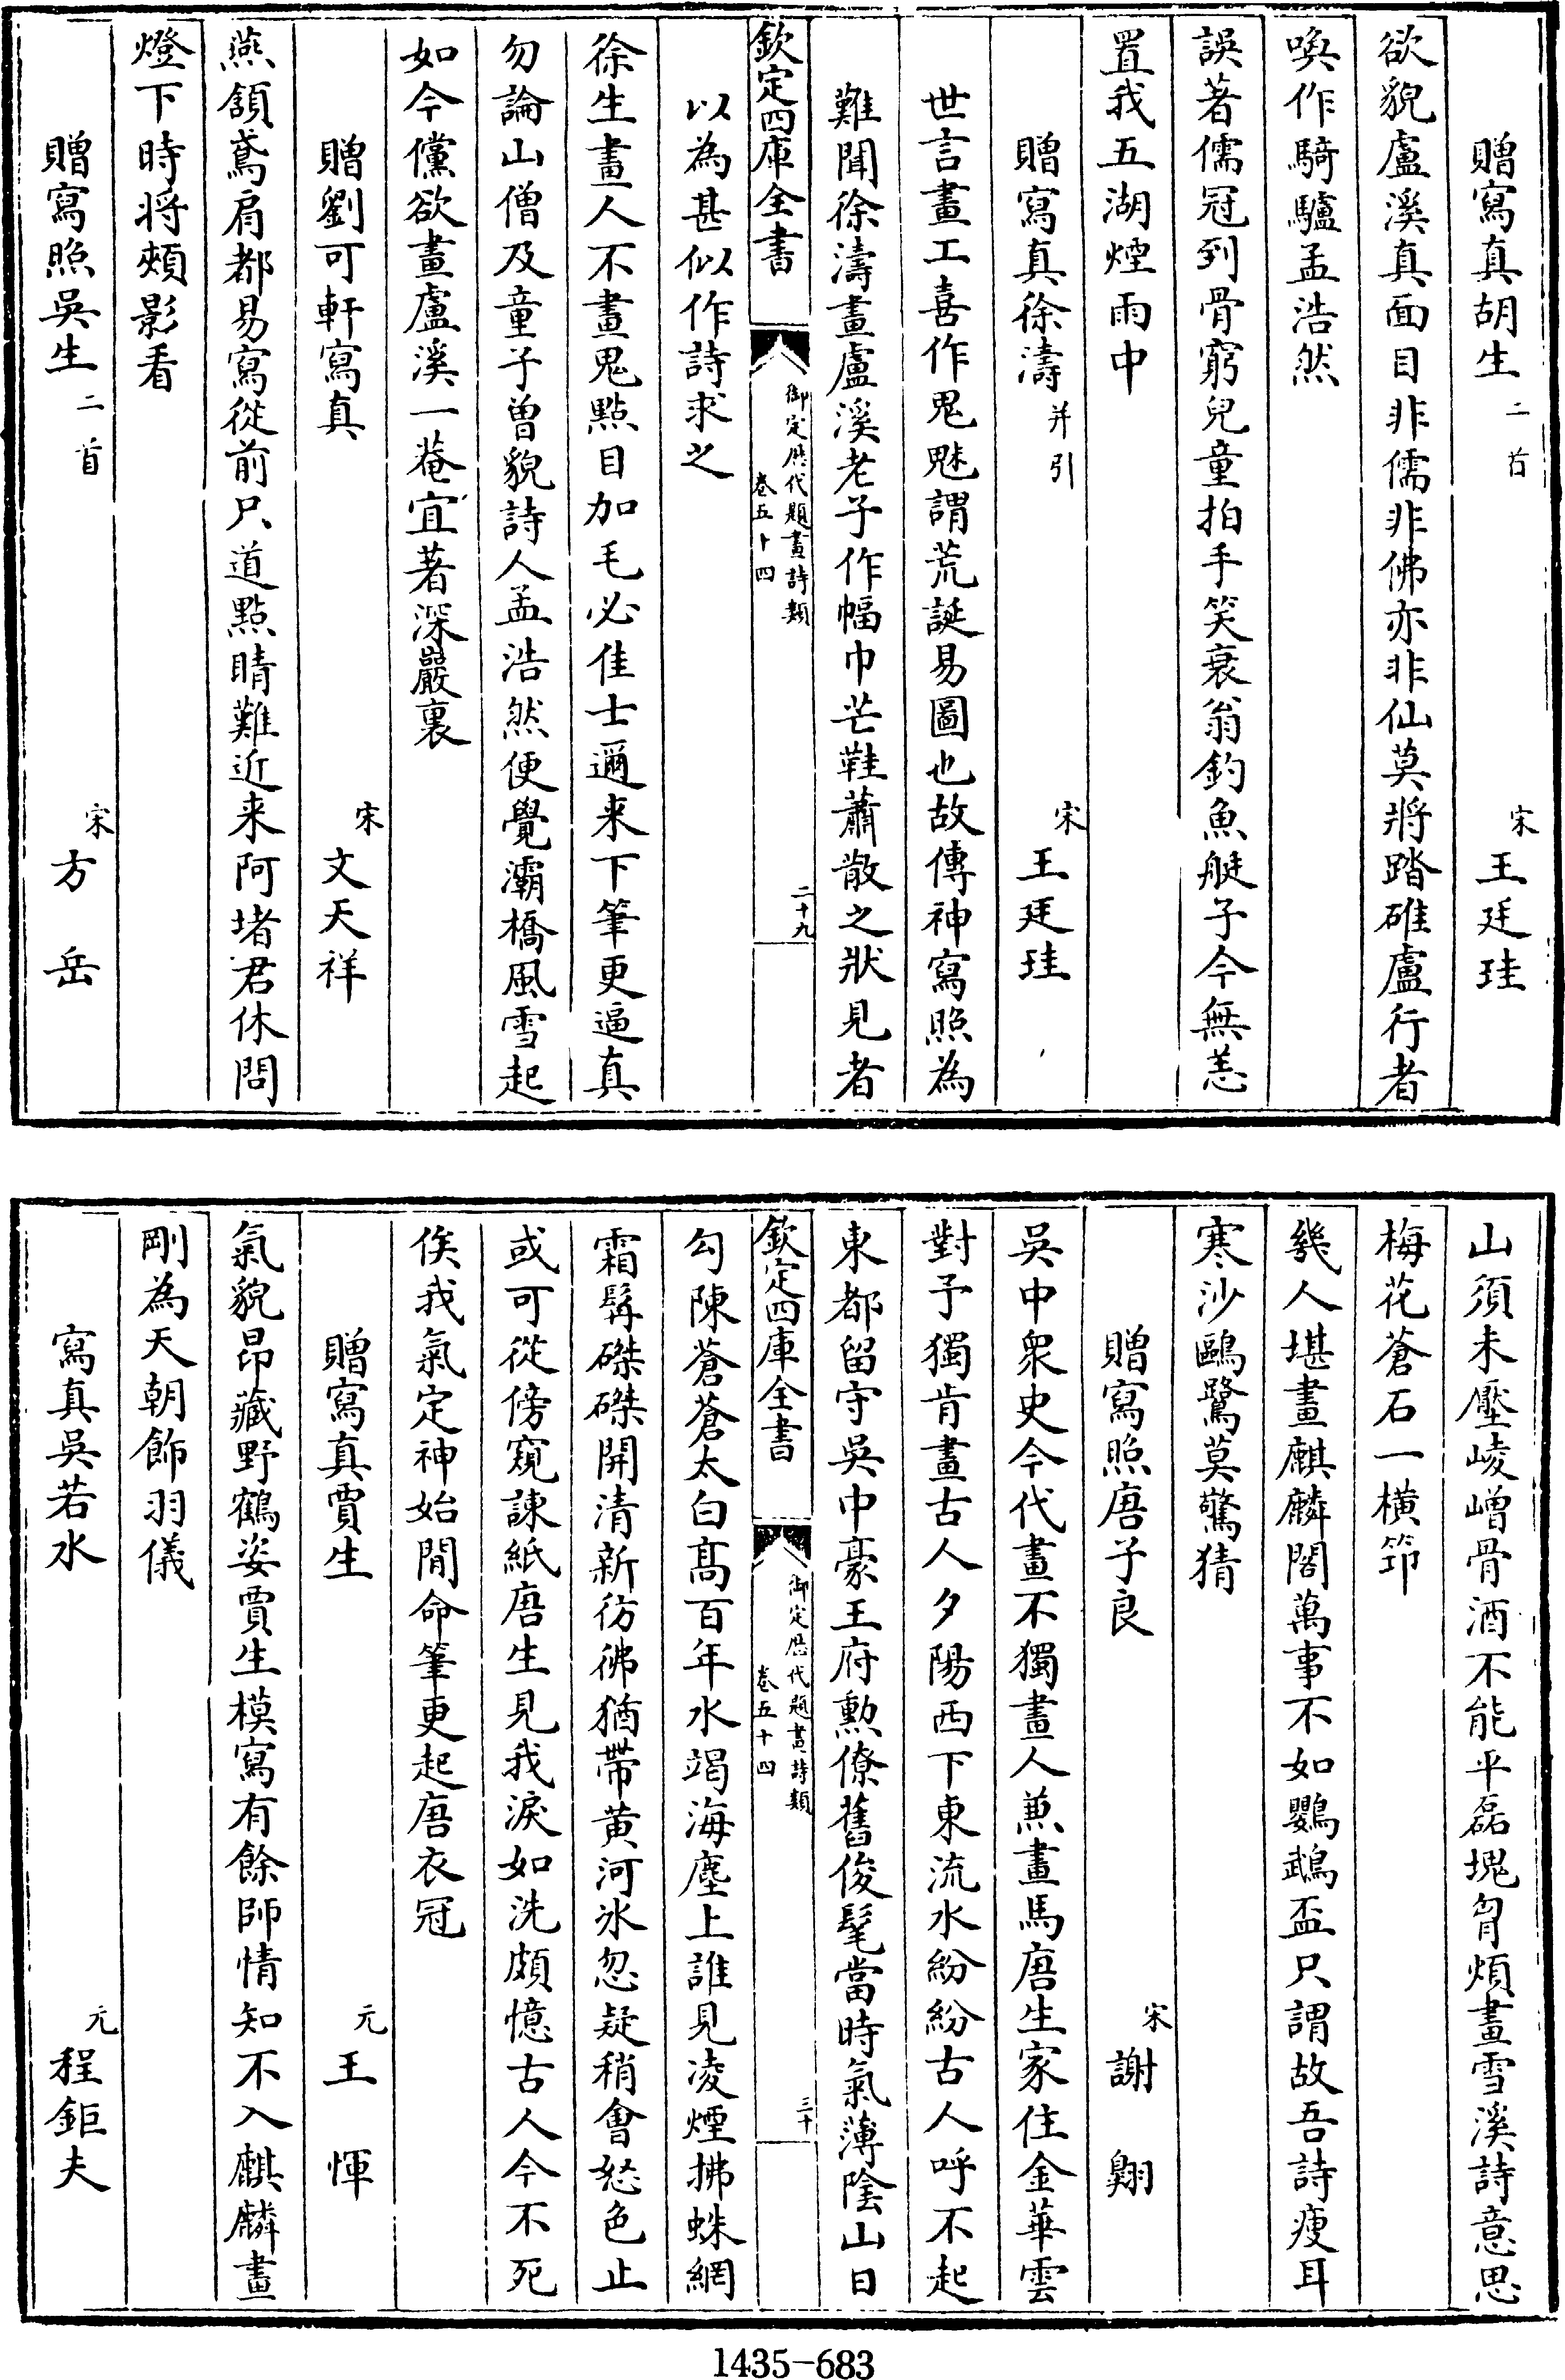 贈寫真胡生二首 宋王廷珪
欲貌盧溪真面目非儒非佛亦非仙莫將踏碓盧行者
喚作騎驢孟浩然
誤著儒冠到骨窮兒童拍手笑衰翁釣魚艇子今無恙
置我五湖煙雨中
贈寫真徐濤并引 宋王廷珪
世言畫工喜作鬼魅謂荒誕易圖也故傳神寫照為
難聞徐濤畫盧溪老子作幅巾芒鞋蕭散之狀見者
欽定四庫全書 御定歷代題畫詩類 卷五十四 二十九
以為甚似作詩求之
徐生畫人不畫鬼點目加毛必佳士邇来下筆更逼真
勿論山僧及童子曾貌詩人孟浩然便覺灞橋風雪起
如今儻欲畫盧溪一菴宜著深巖裏
贈劉可軒寫真 宋文天祥
燕頷鳶肩都易寫從前只道點睛難近来阿堵君休問
燈下時將頰影看
贈寫照吳生二首 宋方岳
山須未壓崚嶒骨酒不能平磊塊胷煩畫雪溪詩意思
梅花蒼石一橫筇
幾人堪畫麒麟閣萬事不如鸚鵡盃只謂故吾詩瘦耳
寒沙鷗鷺莫驚猜
贈寫照唐子良 宋謝翺
吳中衆史今代畫不獨畫人兼畫馬唐生家住金華雲
對予獨肯畫古人夕陽西下東流水紛紛古人呼不起
東都留守吳中豪王府勲僚舊俊髦當時氣薄陰山日
欽定四庫全書 御定歷代題畫詩類 卷五十四 三十
勾陳蒼蒼太白高百年水竭海塵上誰見凌煙拂蛛網
霜髯磔磔開清新彷彿猶帶黄河冰忽疑稍會怒色止
或可從傍窺諫紙唐生見我淚如洗頗憶古人今不死
俟我氣定神始閒命筆更起唐衣冠
贈寫真賈生 元王惲
氣貌昂藏野鶴姿賈生模寫有餘師情知不入麒麟畫
剛為天朝飾羽儀
寫真吳若水 元程鉅夫
1435-683